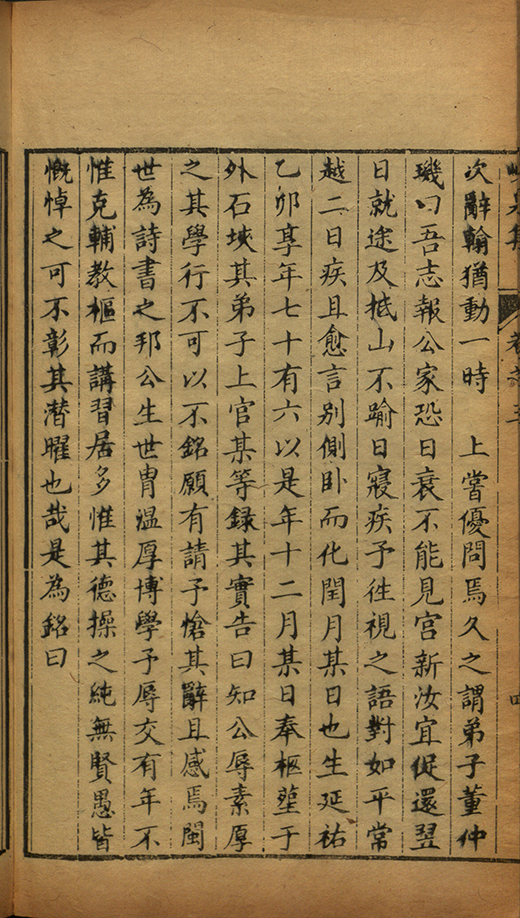 次辭翰猶動一時　上嘗優問焉久之謂弟子董仲
璣曰吾志報公家恐日衰不能見宫新汝宜促還翌
日就途及抵山不踰日寢疾予徃視之語對如平常
越二日疾且愈言别側卧而化閏月某日也生延祐
乙卯享年七十有六以是年十二月某日奉柩塟于
外石𡋾其弟子上官某等録其實告曰知公辱素厚
之其學行不可以不銘願有請予愴其辭且感焉閩
世為詩書之邦公生世胄溫厚博學予辱交有年不
惟克輔教樞而講習居多惟其德操之純無賢愚皆
慨悼之可不彰其潜曜也哉是為銘曰